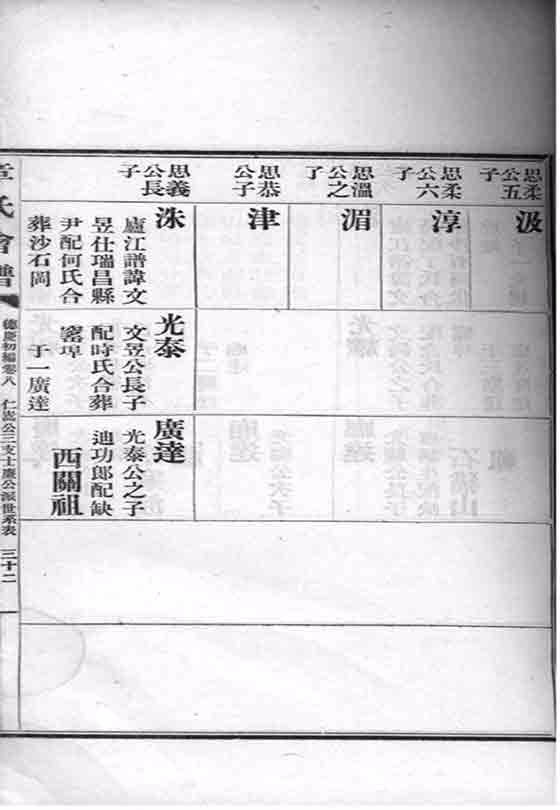 思柔
公五
子
汲
思柔
公六
子
淳
思溫
公之
子
湄
思恭
公子
津
思義
公長
子
洙
廬江譜諱文
昱仕瑞昌縣
尹配何氏合
葬沙石岡
光泰
文昱公長子
配時氏合葬
窰埠
子一廣達
廣達
光泰公之子
迪功郎配缺
西關祖
章氏會譜
德慶初編卷八 仁嵩公三支士廉公派世系表 三十二